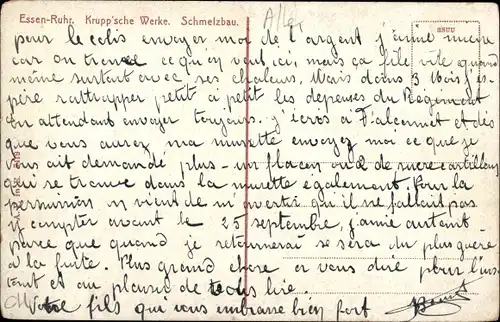 Essen-Ruhr. Krupp'sche Werke. Schmelzbau.
pour le colis envoyer moi de l'argent j'aime mieux
car on trouve ce qu'on veut, ici, mais ça file vite quand
même surtout avec ses chaleurs. Mais dans 3 Mois j'es-
père rattrapper petit à petit les depenses du Regiment
en attendant envoyer toujours. j'ecris à et dès
que vous aurez ma musette envoyez moi ce que je
vous ait demandé plus un flacon de
qui se trouve dans la musette egalement. Pour la
permission on vient de m'avertir qu'il ne fallait pas
y compter avant le 25 septembre, j'aime autant
parce que quand je retournerai se sera du plus guere
à la fuite. Plus grand chose a vous dire pour l'ins-
tant et au plaisir de vous lire.
Votre fils qui vous embrasse bien fort